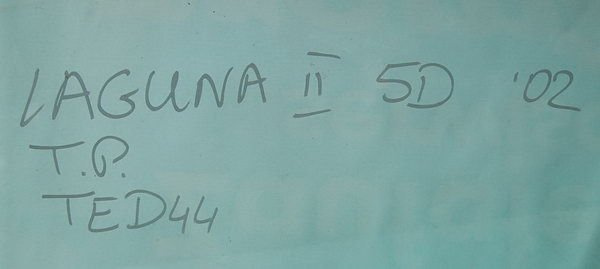 LAGUNA II 5D '02
T.P.
TED44